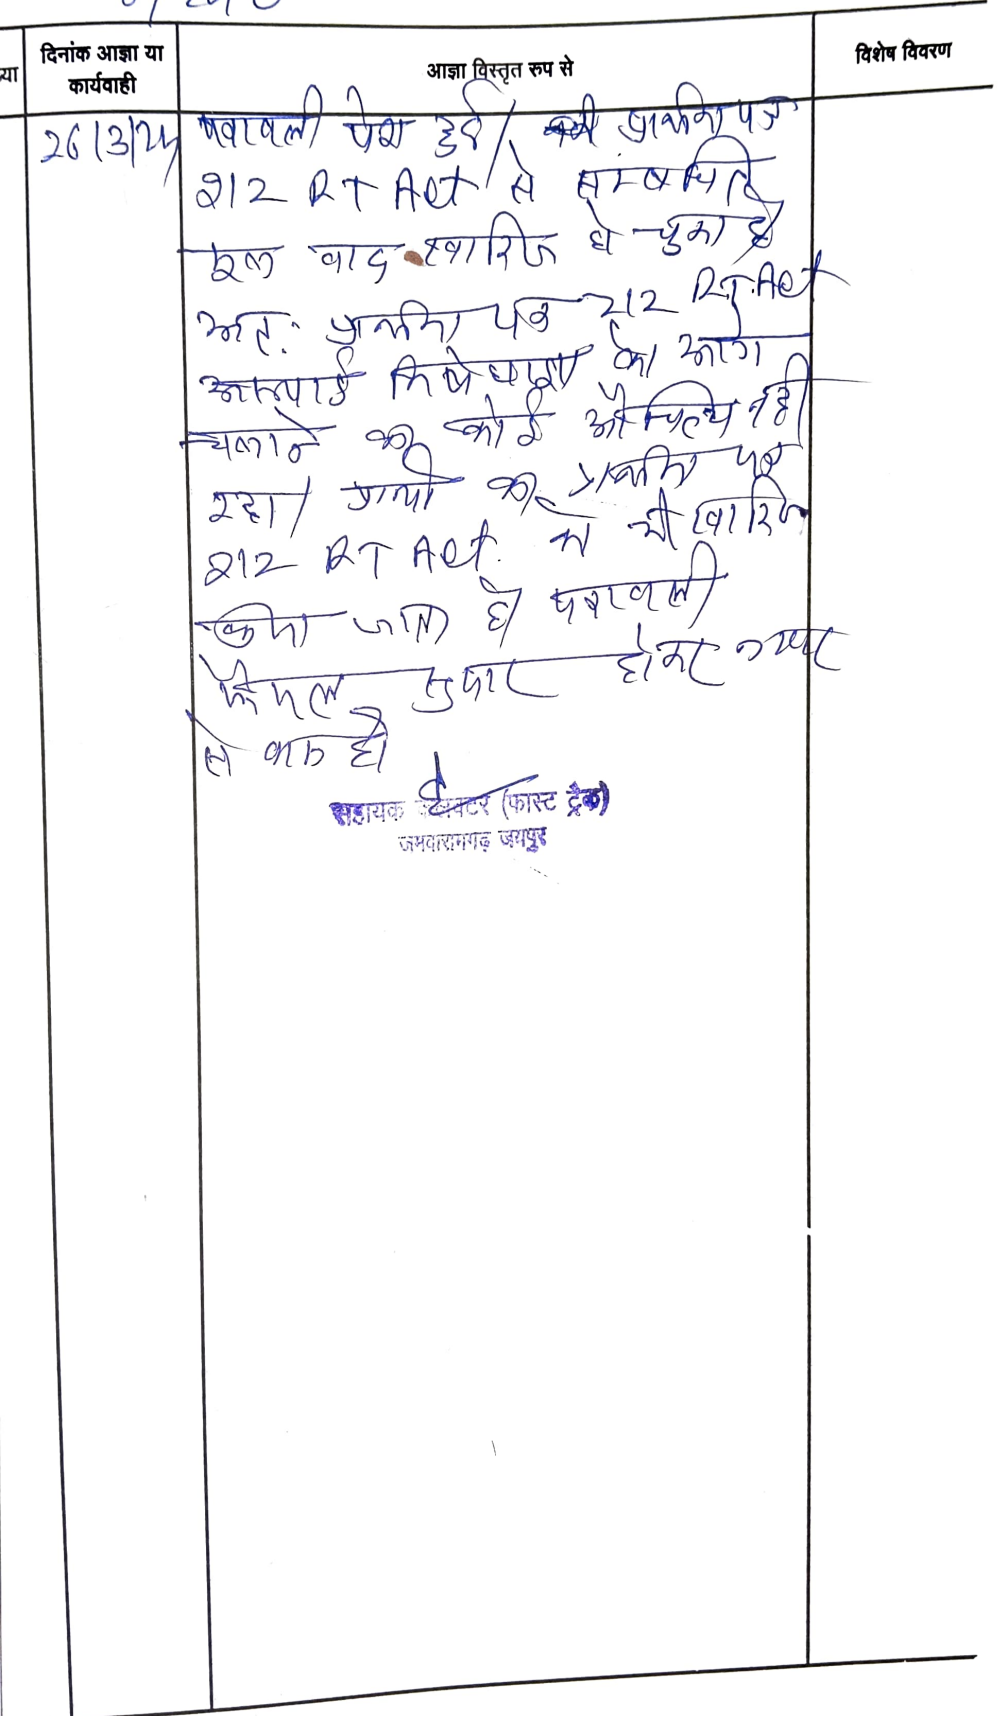 या
दिनांक आज्ञा या
कार्यवाही
आज्ञा विस्तृत रूप से
विशेष विवरण
26/3/24 पत्रावली पेश हुई। प्रार्थना पत्र
212 RT Act से सम्बन्धित
मूल वाद खारिज हो चुका है
अतः प्रार्थना पत्र 212 R.T. Act
अस्थाई निषेधाज्ञा को आगे
चलाने का कोई औचित्य नहीं
रहा। प्रार्थी का प्रार्थना पत्र
212 RT Act. में भी खारिज
किया जाता है पत्रावली
फैसल शुमार होकर नम्बर
से कम हो
सहायक कलक्टर (फास्ट ट्रैक)
जमवारामगढ़ जयपुर